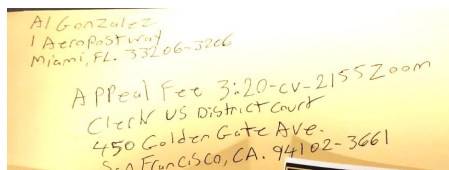 Al Gonzalez
1 Aeropost way
Miami, FL. 33206-3206
Appeal Fee 3:20-cv-2155 Zoom
Clerk US District Court
450 Golden Gate Ave.
San Francisco, CA. 94102-3661